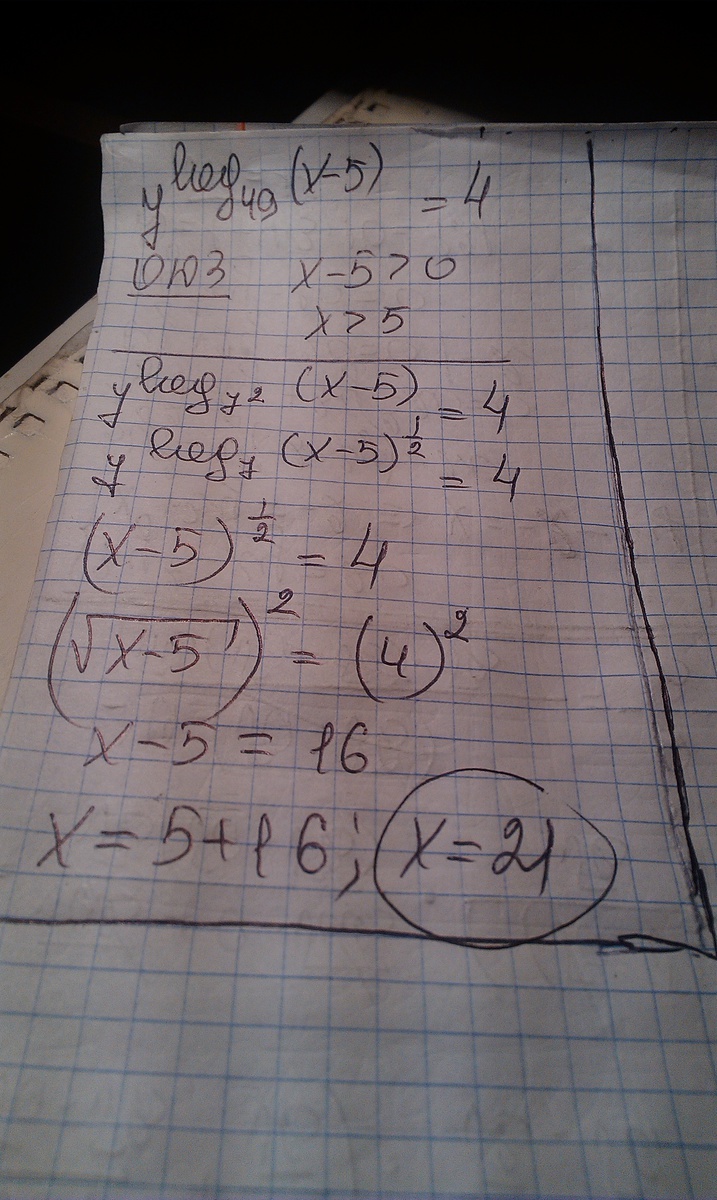 7^log_49 (x-5) = 4
ОДЗ x-5>0
x>5
7^log_7² (x-5) = 4
7^log_7 (x-5)^½ = 4
(x-5)^½ = 4
(√x-5)² = (4)²
x-5 = 16
x = 5+16; x = 21